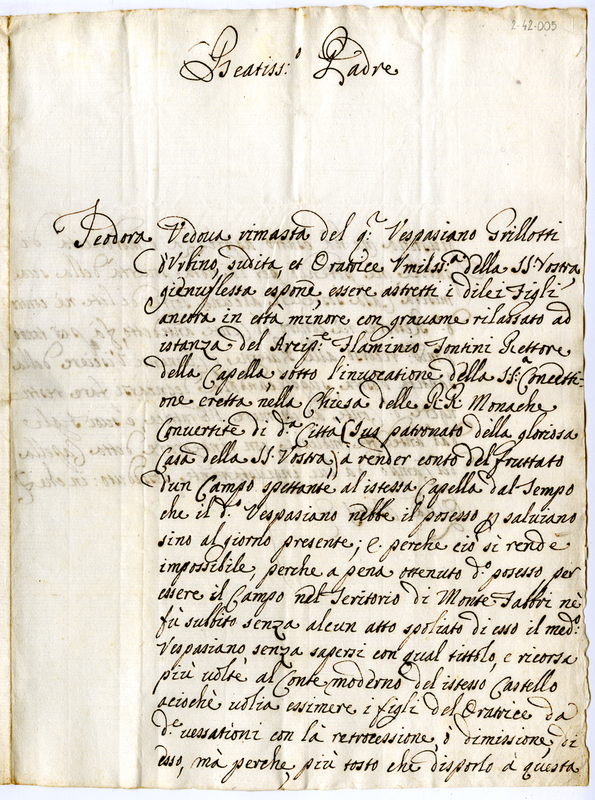 2-42-005
Beatiss:o Padre
Teodora Vedoua rimasta del q.r Vespasiano Grillotti
d'Vrbino, sudita et Oratrice Vmilss:a della SS: Vostra
gienuflessa espone, essere astretti i di lei Figli
ancora in ettà minore con grauame rilassato ad
istanza del Arcip.e Flaminio Fontini Rettore
della Capella sotto l'inuocatione della SS:a Concetti-
one eretta nella Chiesa delle R:R: Monache
Conuertite di d.a Città (Jus patronato della gloriosa
Casa della SS: Vostra) a render conto del fruttato
d'un Campo spettante al istessa Capella dal Tempo
che il d.o Vespasiano n'ebbe il posesso saluiano
sino al giorno presente; e perche ciò si rende
impossibile, perche a pena ottenuto d.o posesso, per
essere il Campo nel Teritorio di Monte Fabbri nè
fù subbito senza alcun atto spoliato di esso il med.o
Vespasiano senza sapersi con qual tittolo, e ricorsa
più uolte al Conte moderno del istesso Castello
aciochè uolia essimere i figli del Oratrice da
d.e uessationi con là retrocessione, ò dimissione di
esso, mà perche, più tosto che disporlo à questa